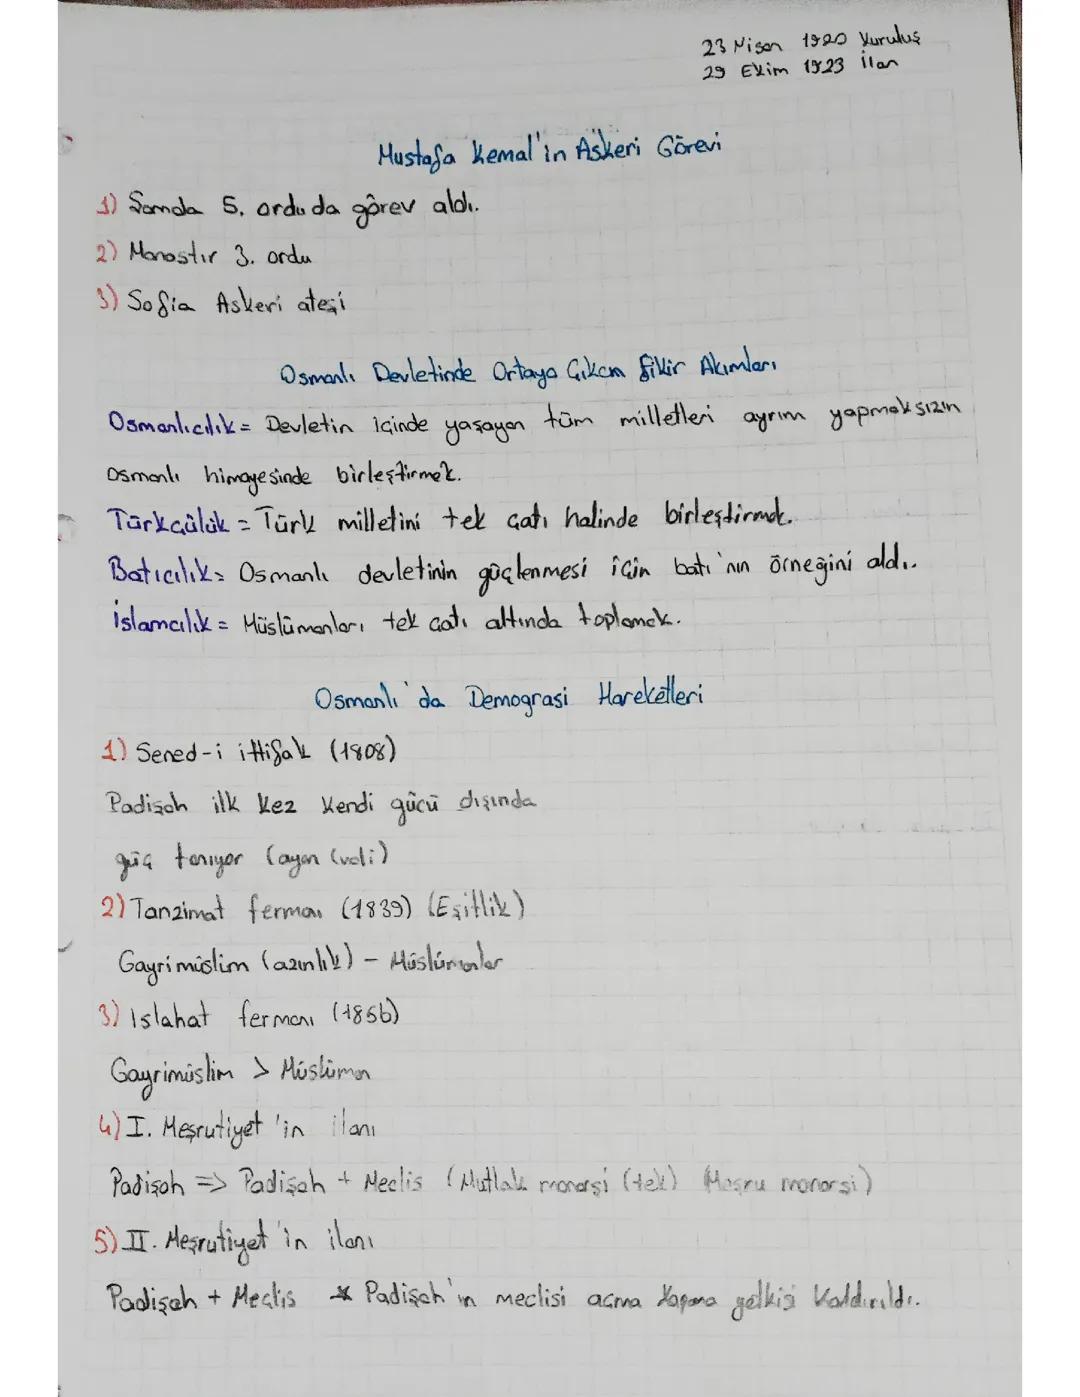 23 Nisan 1920 Kuruluş
29 Ekim 1923 İlan
Mustafa Kemal'in Askeri Görevi
1) Şamda 5. orduda görev aldı.
2) Manastır 3. ordu
3) Sofia Askeri ateşi
Osmanlı Devletinde Ortaya Çıkan Fikir Akımları
Osmanlıcılık = Devletin içinde yaşayan tüm milletleri ayrım yapmaksızın
Osmanlı himayesinde birleştirmek.
Türkçülük = Türk milletini tek çatı halinde birleştirmek.
Batıcılık = Osmanlı devletinin güçlenmesi için batı'nın örneğini aldı.
İslamcılık = Müslümanları tek çatı altında toplamak.
Osmanlı'da Demograsi Hareketleri
1) Sened-i ittifak (1808)
Padişah ilk kez kendi gücü dışında
güç tanıyor (ayan (vali)
2) Tanzimat fermanı (1839) (Eşitlik)
Gayrimüslim (azınlık) - Müslümanlar
3) Islahat fermanı (1856)
Gayrimüslim > Müslüman
4) I. Meşrutiyet'in ilanı
Padişah => Padişah + Meclis (Mutlak monarşi (tek) (Meşru monarşi)
5) II. Meşrutiyet'in ilanı
Padişah + Meclis * Padişah'ın meclisi açma kapama yetkisi kaldırıldı.